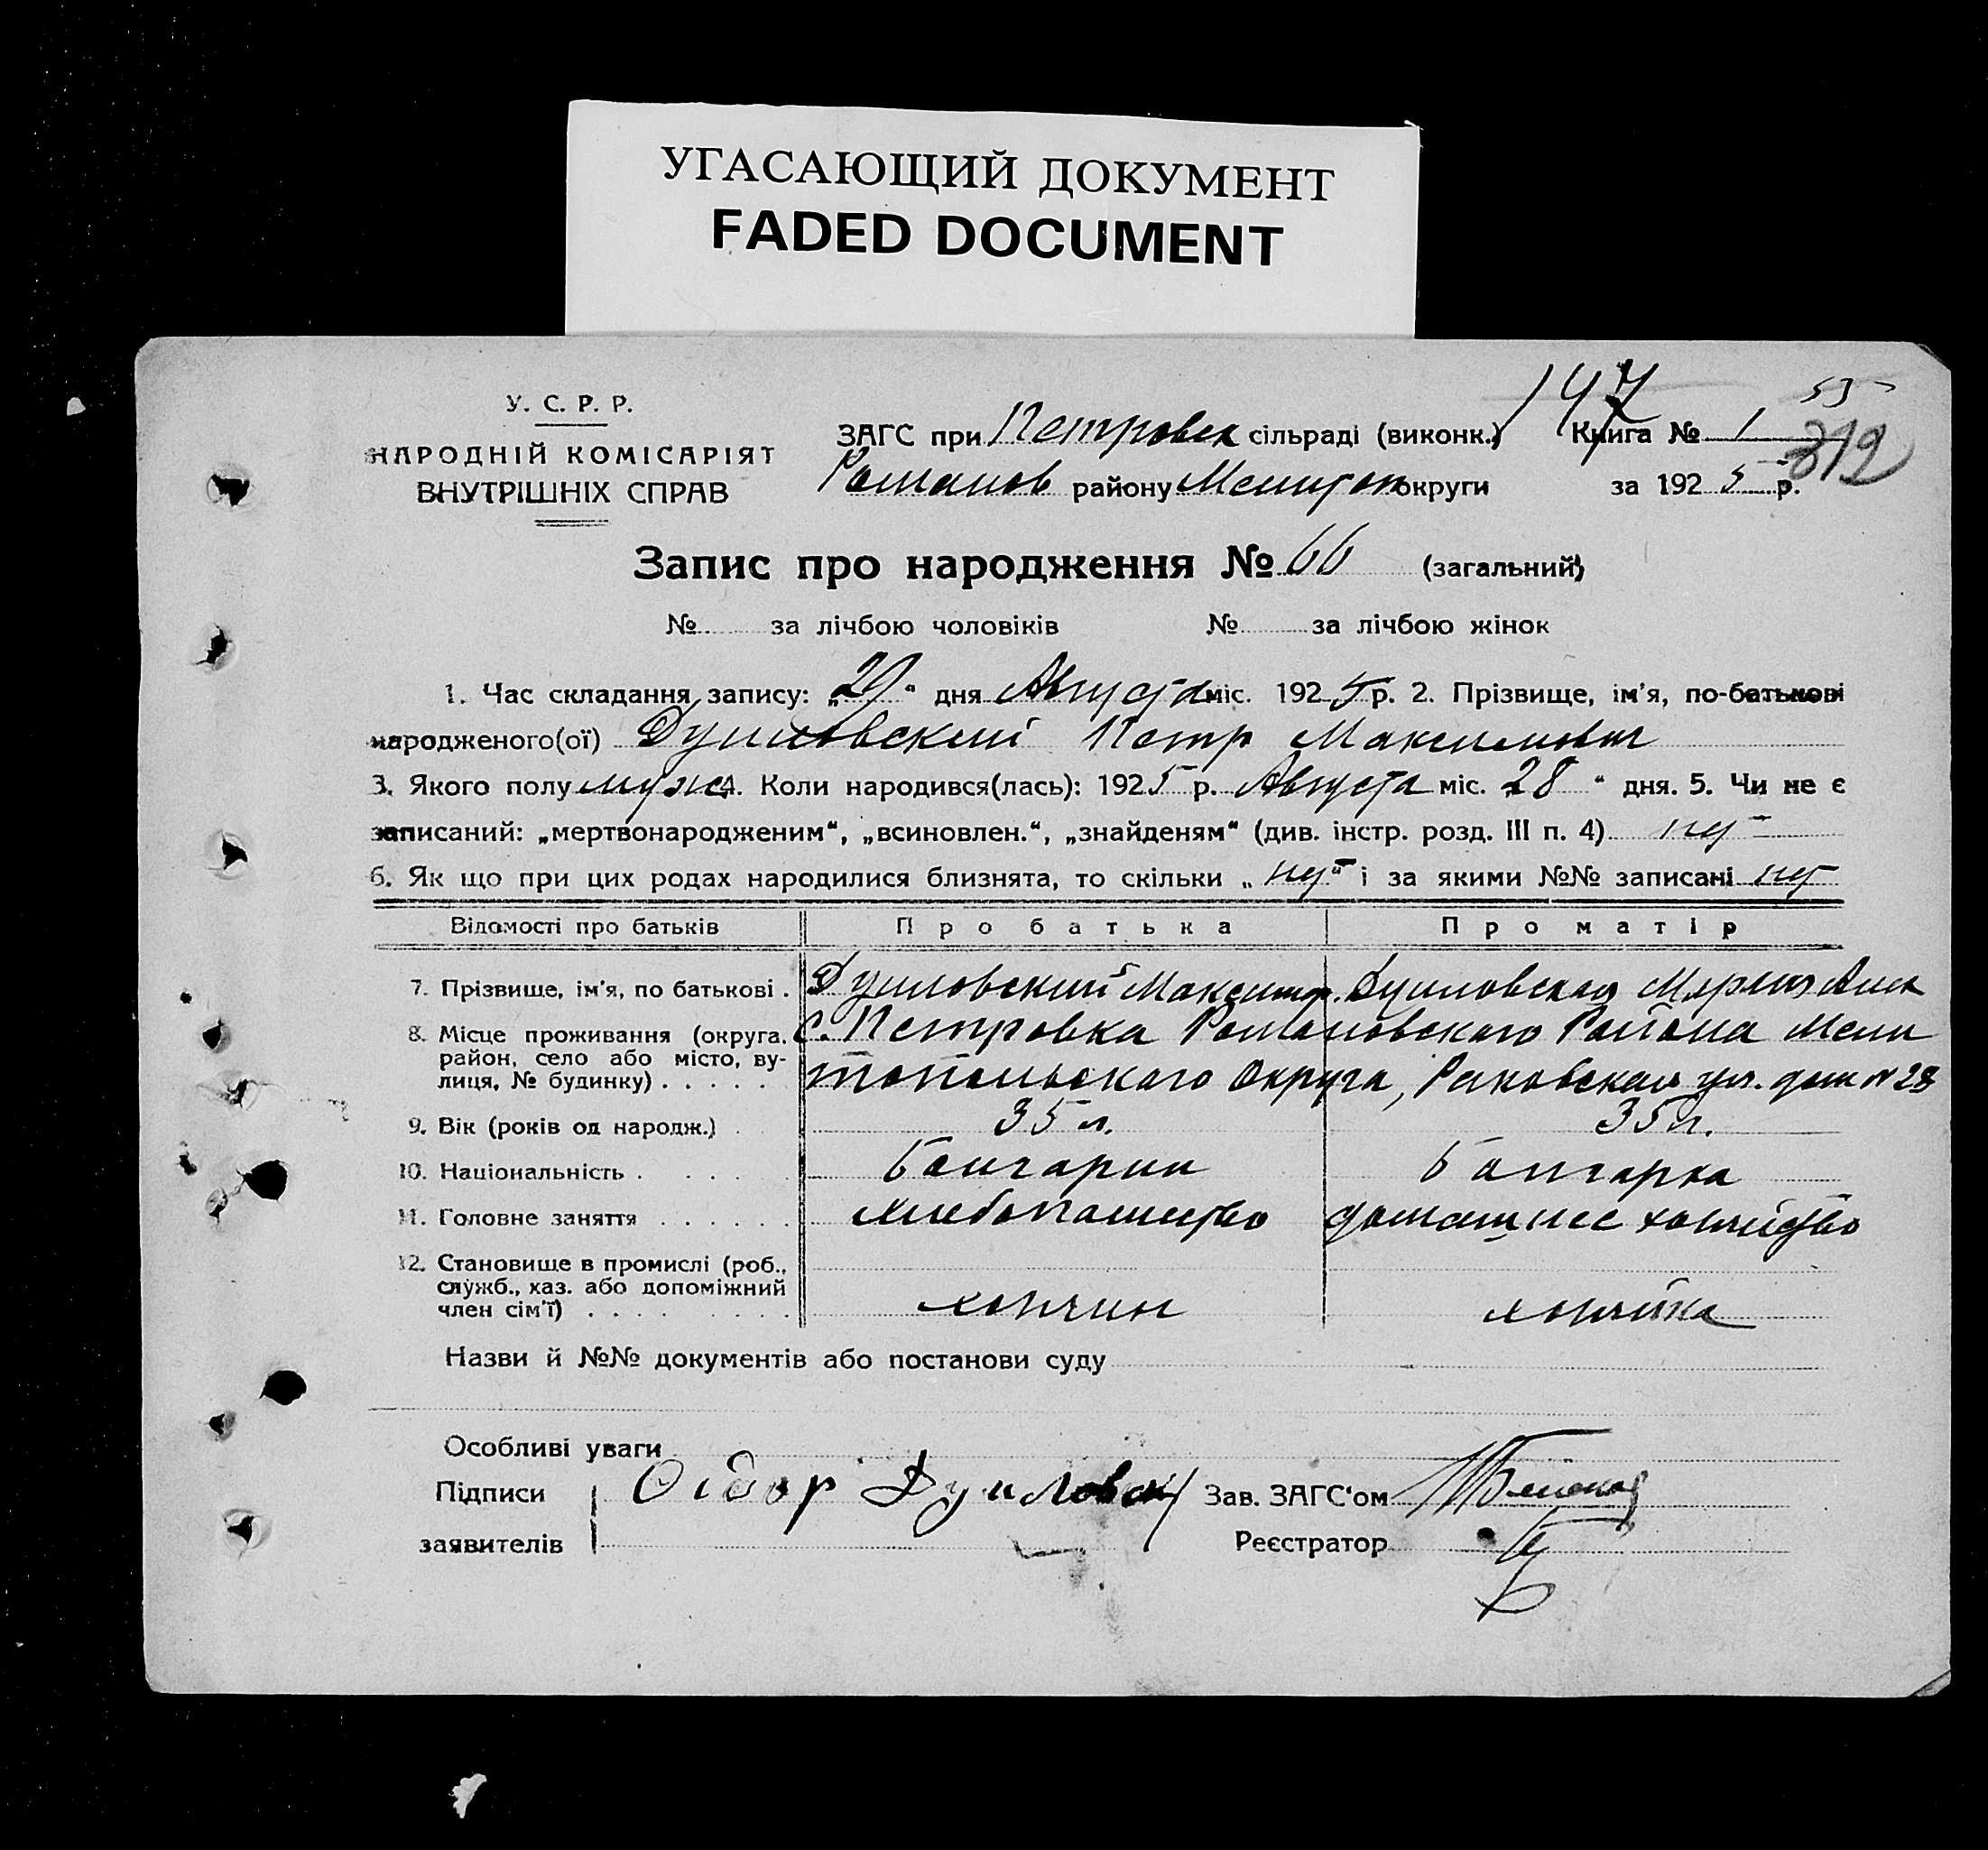 УГАСАЮЩИЙ ДОКУМЕНТ
FADED DOCUMENT
147
53
У. С. Р. Р.
НАРОДНІЙ КОМІСАРІЯТ
ВНУТРІШНІХ СПРАВ
ЗАГС при Петровск сільраді (виконк.) Книга № 1
312
Романов району Мелитоп округи за 1925 р.
Запис про народження № 66 (загальний)
№ за лічбою чоловіків № за лічбою жінок
1. Час складання запису: „29" дня Августа міс. 1925 р. 2. Прізвище, ім'я, по-батькові
народженого(ої) Душловский Петр Максимович
3. Якого полу муж 4. Коли народився(лась): 1925 р. Августа міс. 28 " дня. 5. Чи не є
записаний: „мертвонародженим", „всиновлен.", „знайденям" (див. інстр. розд. III п. 4) нет
6. Як що при цих родах народилися близнята, то скільки „нет" і за якими №№ записані нет
Відомості про батьків Про батька Про матір
7. Прізвище, ім'я, по батькові . Душловский Максим Душловская
8. Місце проживання (округа, район, село або місто, вулиця, № будинку) . . . . . с. Петровка Романовского Района Мели
топольскаго Округа, Раковская ул. дом № 28
9. Вік (років од народж.) . 35 л. 35 л.
10. Національність . . . . . Болгарин Болгарка
11. Головне заняття . . . . . . хлебопашество домашнее хозяйство
12. Становище в промислі (роб.,
служб., хаз. або допоміжний
член сім'ї) . . . . . . . . хозяин хозяйка
Назви й №№ документів або постанови суду
Особливі уваги
Підписи Зав. ЗАГС'ом
заявителів Реєстратор